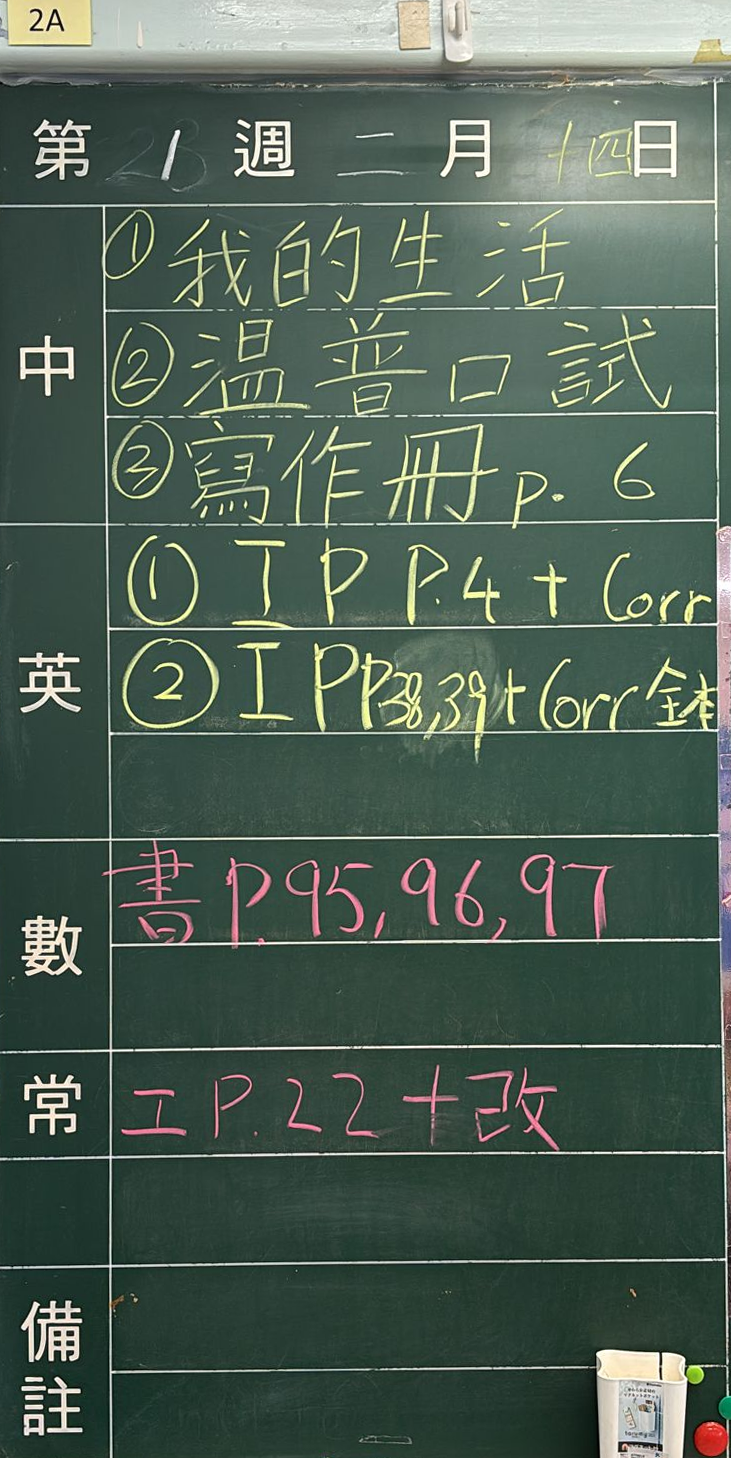 2A
第 週 二 月 十四 日
中
① 我的生活
② 温普口試
③ 寫作冊 p. 6
英
① IP P.4 + Corr
② IP P.38,39 + Corr 全本
數
書 P.95, 96, 97
常
工 P.22 + 改
備註